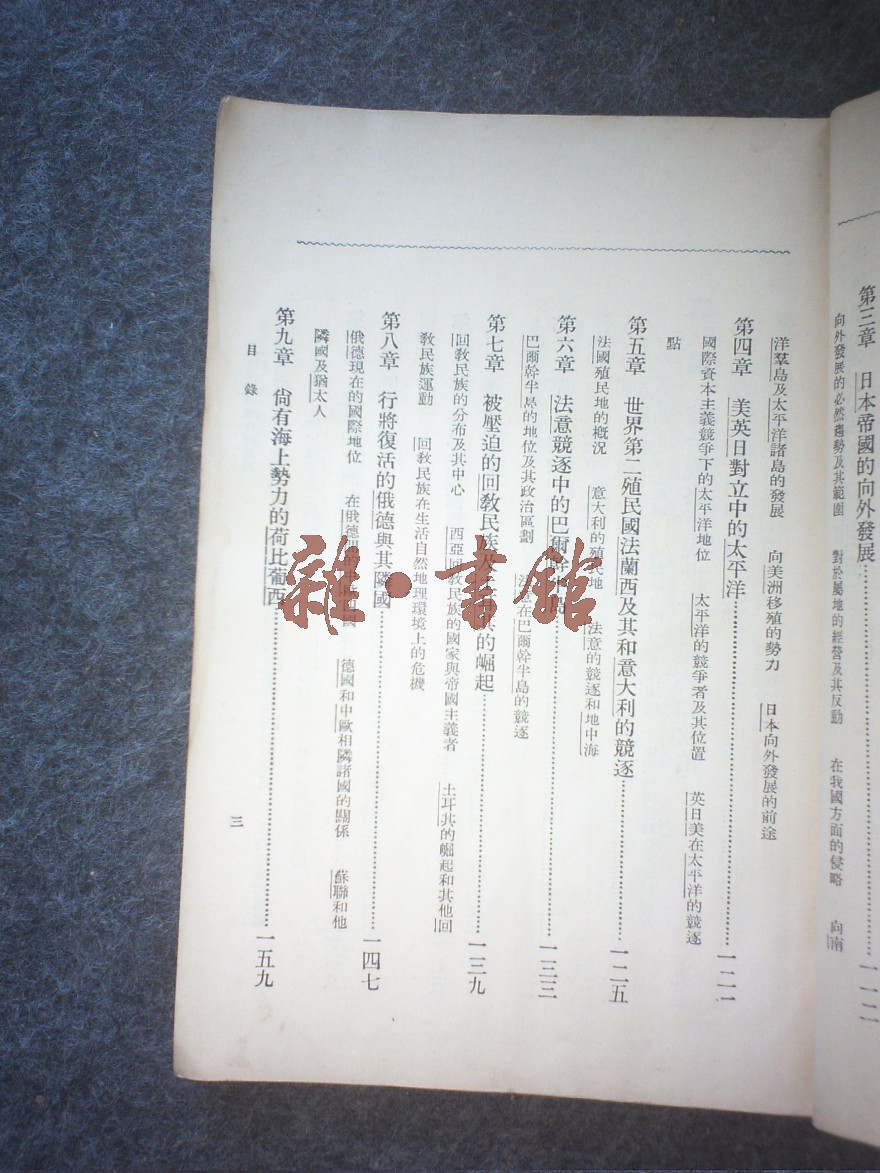 第三章 日本帝國的向外發展………一一二
向外發展的必然趨勢及其範圍 對於屬地的經營及其反動 在我國方面的侵略 向南
洋羣島及太平洋諸島的發展 向美洲移殖的勢力 日本向外發展的前途
第四章 美英日對立中的太平洋………一二一
國際資本主義競爭下的太平洋地位 太平洋的競爭者及其位置 英日美在太平洋的競逐
點
第五章 世界第二殖民國法蘭西及其和意大利的競逐………一二五
法國殖民地的概況 意大利的殖民地 法意的競逐和地中海
第六章 法意競逐中的巴爾幹半島………一三三
巴爾幹半島的地位及其政治區劃 在巴爾幹半島的競逐
第七章 被壓迫的回敎民族及 的崛起………一三九
回敎民族的分布及其中心 西亞回敎民族的國家與帝國主義者 土耳其的崛起和其他回
敎民族運動 回敎民族在生活自然地理環境上的危機
第八章 行將復活的俄德與其隣國………一四七
俄德現在的國際地位 在俄德 國 德國和中歐相隣諸國的關係 蘇聯和他
隣國及猶太人
第九章 尙有海上勢力的荷比葡西………一五九
目錄
三
雜·書館